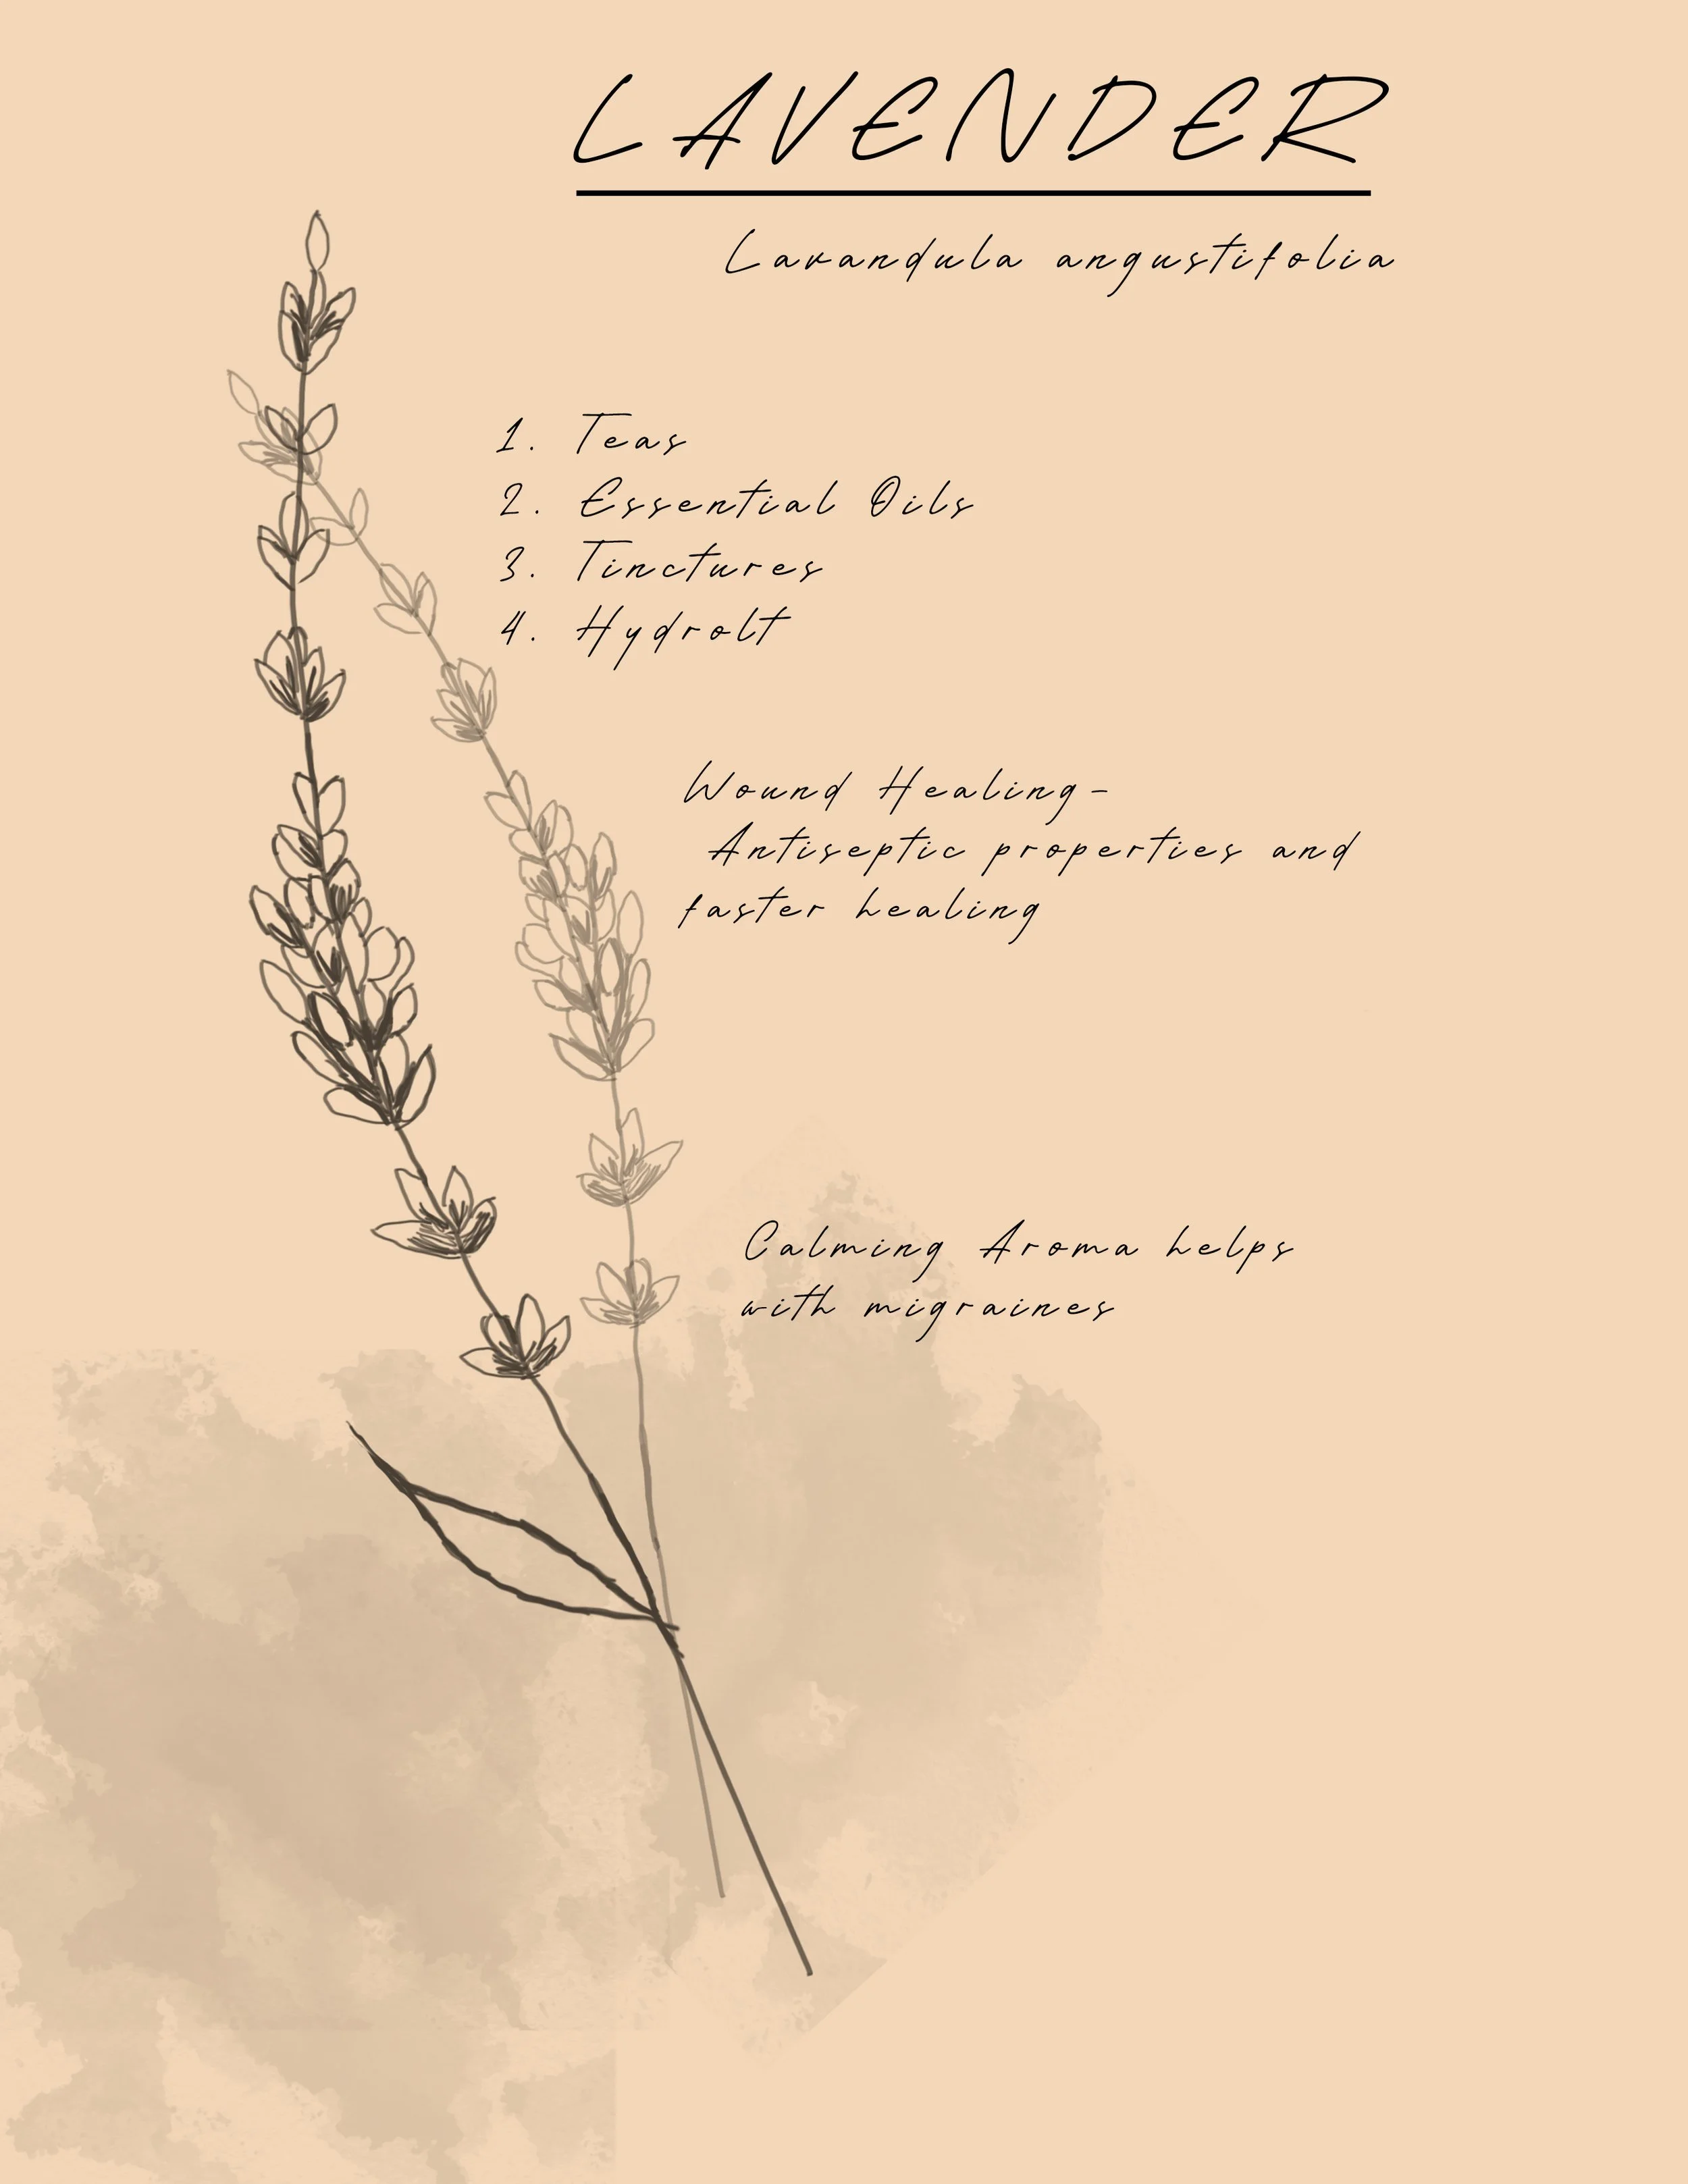 LAVENDER
Lavandula angustifolia
1. Teas
2. Essential Oils
3. Tinctures
4. Hydrolt
Wound Healing-
Antiseptic properties and
faster healing
Calming Aroma helps
with migraines